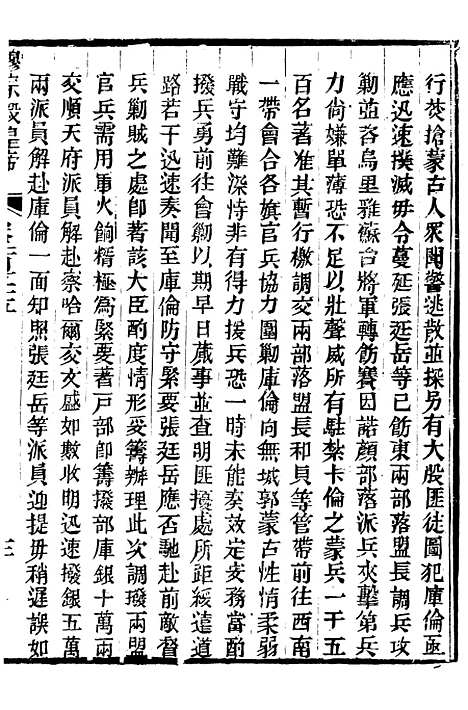 行焚搶蒙古人眾聞警逃散並探另有大股匪徒圖犯庫倫亟
應迅速撲滅毋令蔓延張廷岳等已飭東兩部落盟長調兵攻
勦並咨烏里雅蘇台將軍轉飭賽因諾顏部落派兵夾擊第兵
力尚嫌單薄恐不足以壯聲威所有駐紮卡倫之蒙兵一千五
百名著准其暫行檄調交兩部落盟長和貝等管帶前往西南
一帶會合各旗官兵協力圍勦庫倫向無城郭蒙古性情柔弱
戰守均難深恃非有得力援兵恐一時未能定妥務當酌
撥兵勇前往會勦以期早日蕆事並查明匪擾處所距綏遠道
路若干迅速奏聞至庫倫防守緊要張廷岳應否馳赴前敵督
兵勦賊之處卽著該大臣酌度情形妥籌辦理此次調撥兩盟
官兵需用軍火餉糈極為緊要著戶部卽籌撥部庫銀十萬兩
交順天府派員解赴察哈爾交文盛如數收明迅速撥銀五萬
兩派員解赴庫倫一面知照張廷岳等派員迎提毋稍遲誤如
穆宗毅皇帝
三